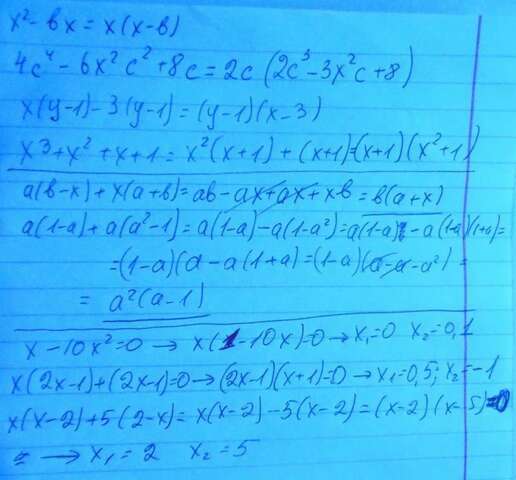 x² - bx = x(x-b)
4c⁴ - 6x²c² + 8c = 2c(2c³ - 3x²c + 8)
x(y-1) - 3(y-1) = (y-1)(x-3)
x3 + x² + x + 1 = x²(x+1) + (x+1) = (x+1)(x²+1)
a(b-x) + x(a+b) = ab - ax + ax + xb = b(a+x)
a(1-a) + a(a²-1) = a(1-a) - a(1-a²) = a(1-a) - a(1-a)(1+a) =
= (1-a)(a - a(1+a) = (1-a)(a - a - a²) =
= a²(a-1)
x - 10x² = 0 → x(1-10x) = 0 → x₁ = 0 x₂ = 0,1
x(2x-1) + (2x-1) = 0 → (2x-1)(x+1) = 0 → x₁ = 0,5; x₂ = -1
x(x-2) + 5(2-x) = x(x-2) - 5(x-2) = (x-2)(x-5) = 0
= → x₁ = 2 x₂ = 5